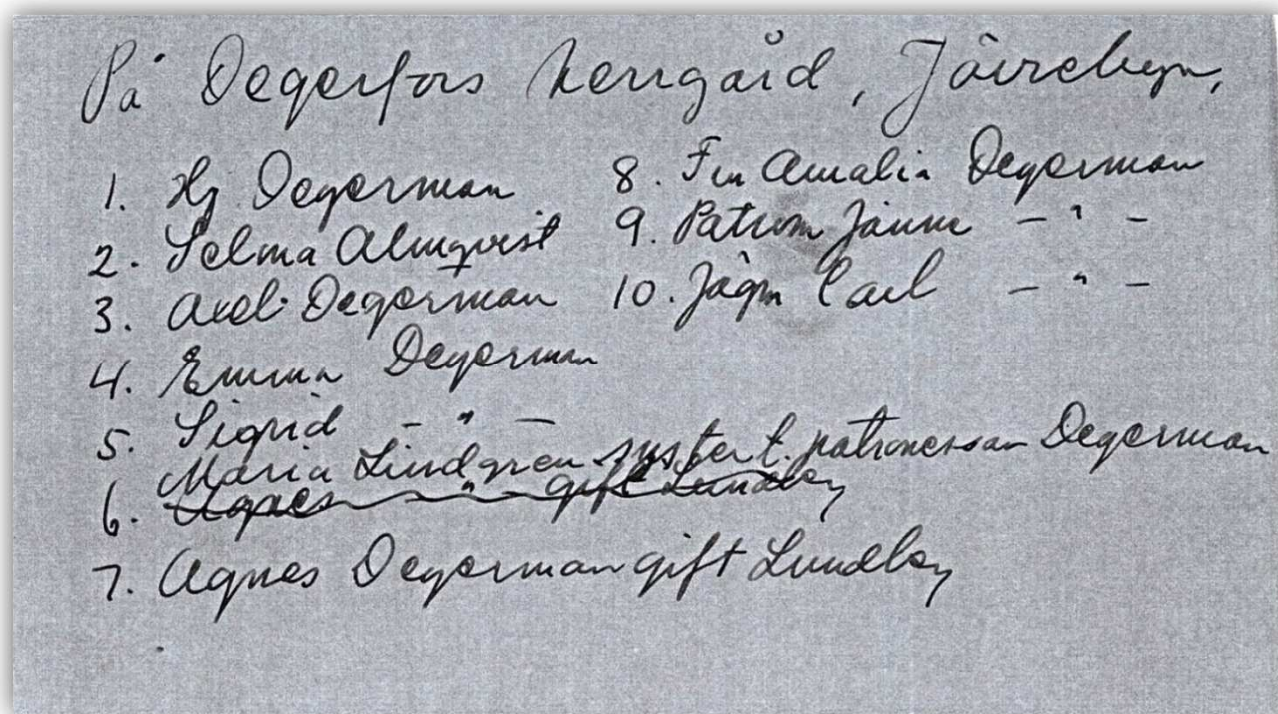 På Degerfors herrgård, Jävrebyn,
1. Hj Degerman
2. Selma Almqvist
3. Axel Degerman
4. Emma Degerman
5. Sigrid — " —
Maria Lindgren syster t. patronessan Degerman
6. Agnes — " — gift Lundby
7. Agnes Degerman gift Lundby
8. Fru Amalia Degerman
9. Patron Janne — " —
10. Jägm Carl — " —